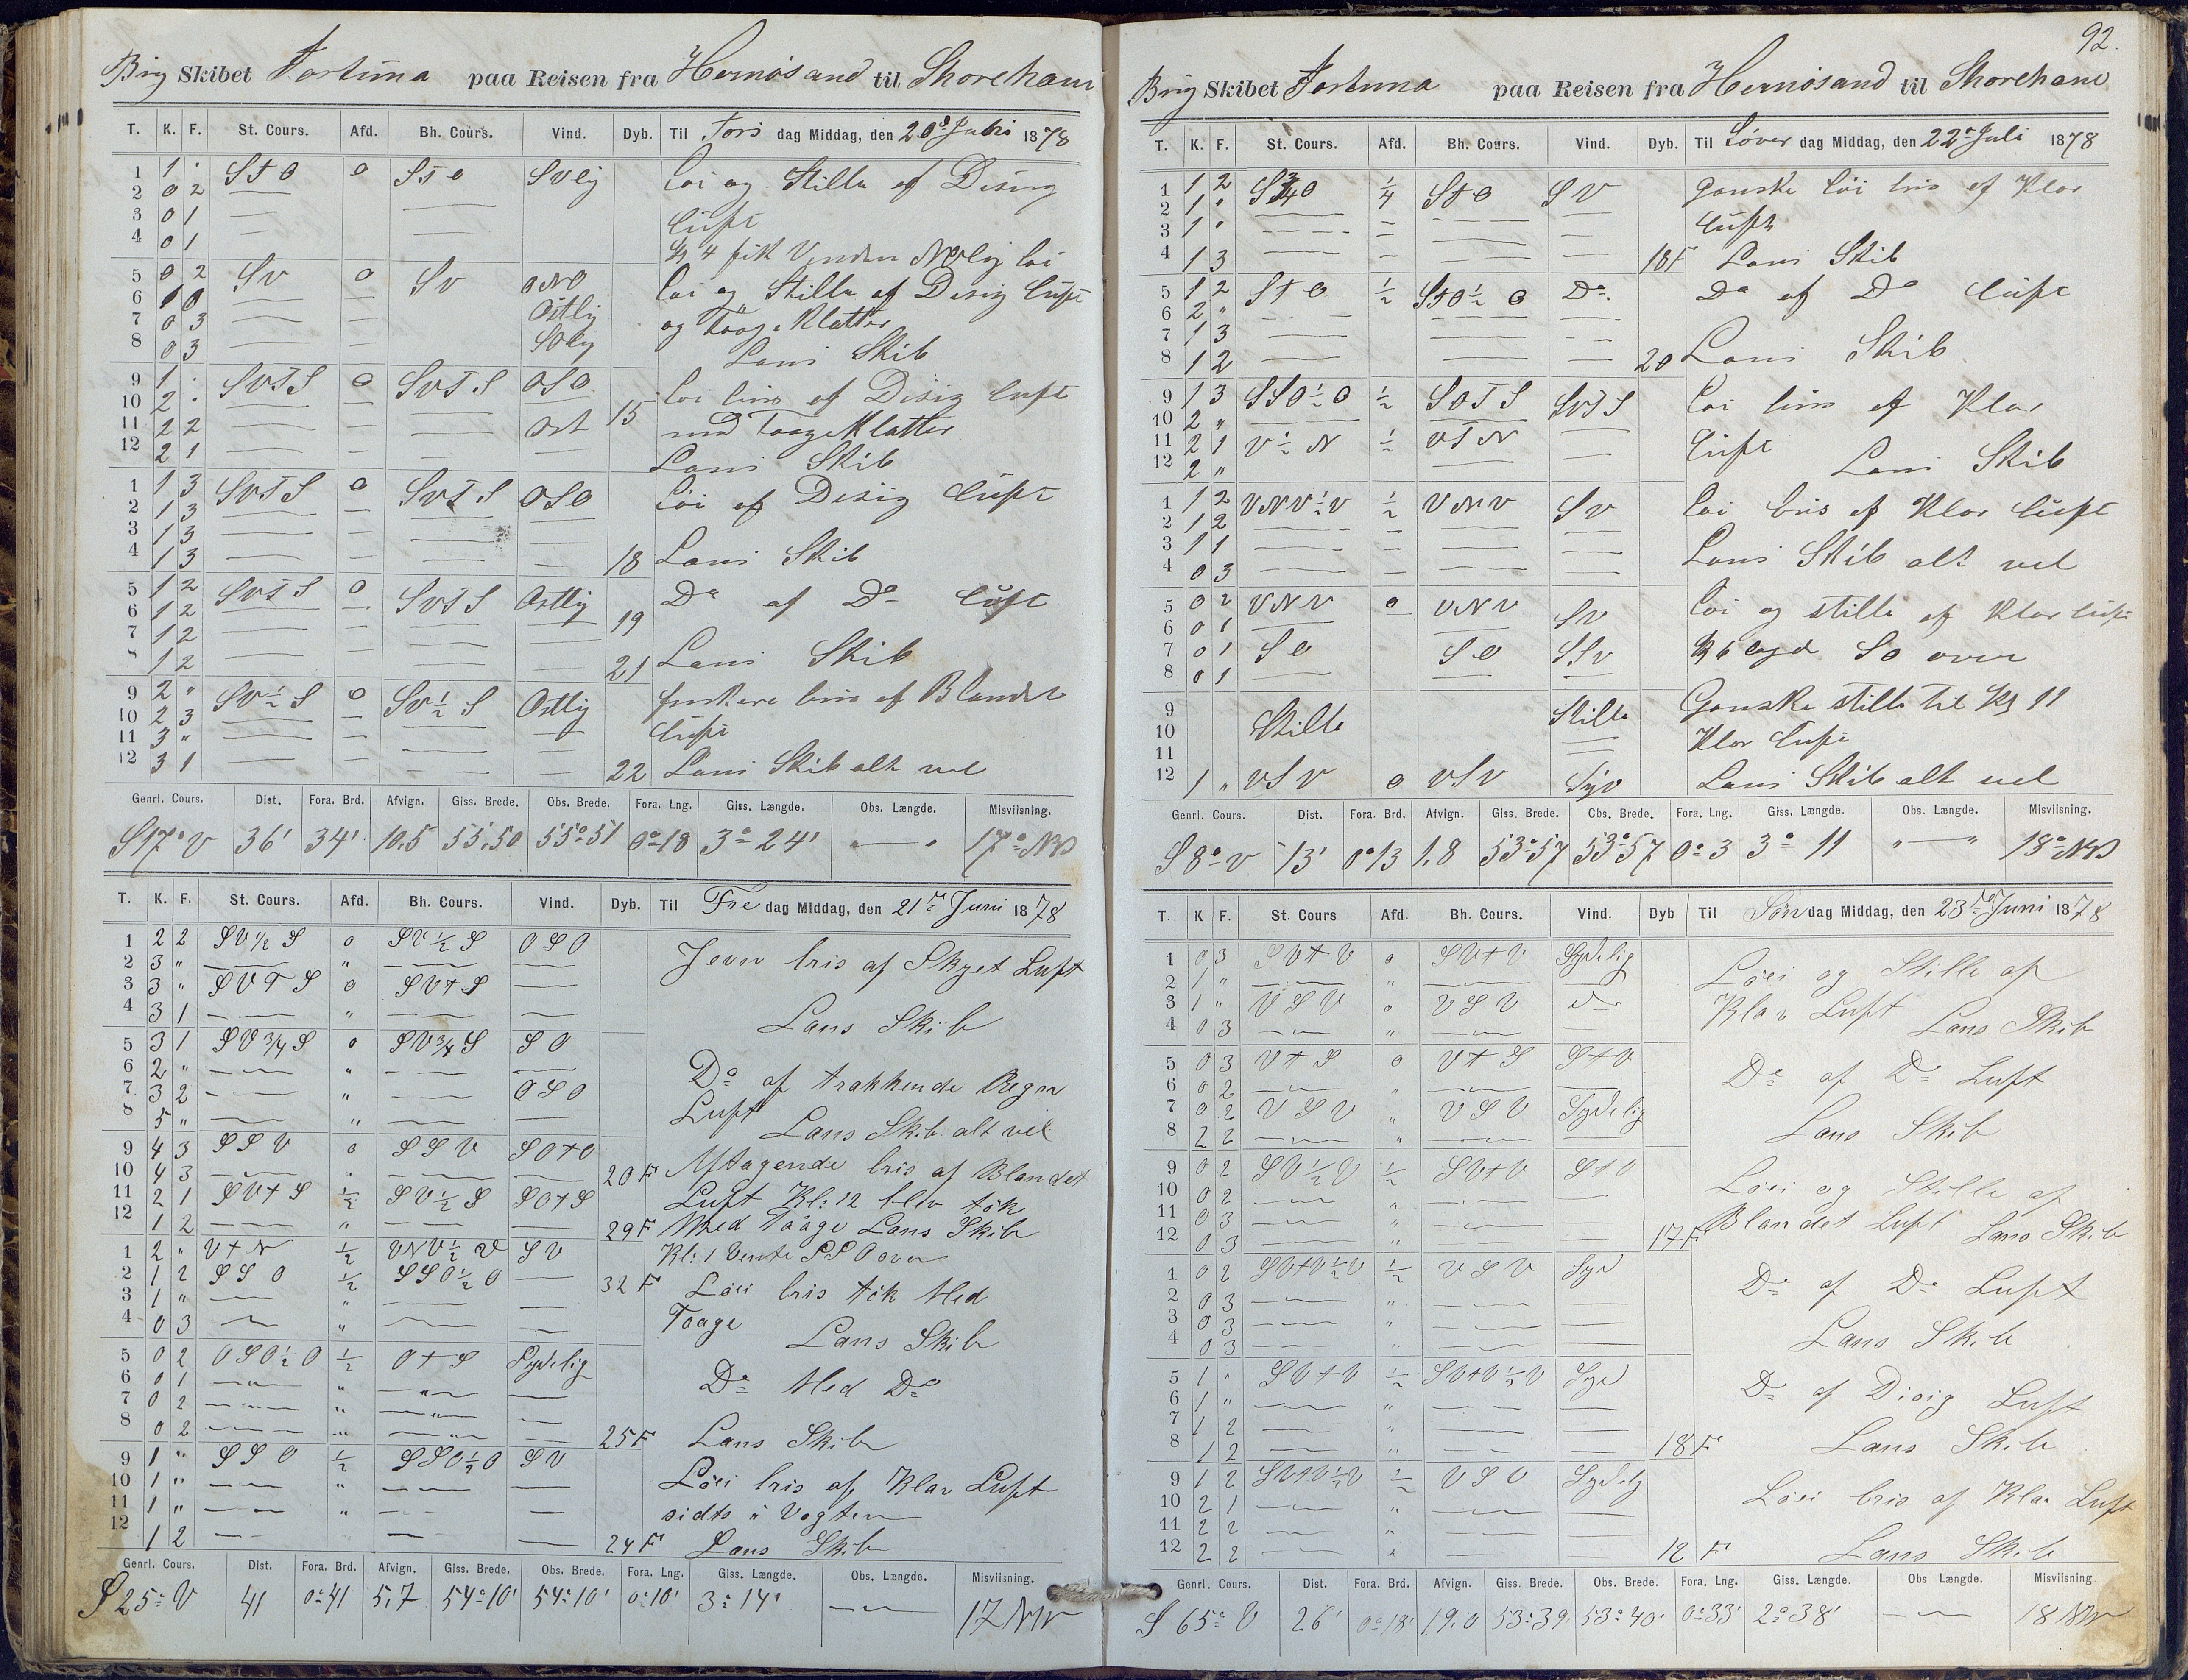 Brig Skibet Fortuna paa Reisen fra Hernösand til Shoreham
T. K. F. St. Cours. Afd. Bh. Cours. Vind. Dyb. Til Tors dag Middag, den 20de Juni 1878
1 1 . StO o StO Svlig Löi og Stille af Disig
2 0 2 — — Luft
3 0 1 — —
4 0 1 Kl 4 fik Vinden NOlig löi
5 0 2 SV o SV ONO Löi og Stille af Disig Luft
6 1 0 — — Ostlig og Taage Klatter
7 0 3 — — SOlig
8 0 3 — — Lans Skib
9 1 . SVTS o SVTS OSO Löi bris af Disig Luft
10 2 . — — — 15 med Taage Klatter
11 2 2 — — — Ost
12 2 1 — — — — Lans Skib
1 1 3 SVTS o SVTS OSO Löi af Disig Luft
2 1 3 — — — —
3 1 3 — — — —
4 1 3 — — — — 18 Lans Skib
5 1 2 SVTS o SVTS Ostlig Do af Do Luft
6 1 2 — — — — 19
7 1 2 — — — —
8 1 2 — — — — 21 Lans Skib
9 2 " SV½S o SV½S Ostlig friskere bris af Blandet
10 2 3 — — — — Luft
11 3 " — — — —
12 3 1 — — — — 22 Lans Skib alt vel
Genrl. Cours. Dist. Fora. Brd. Afvign. Giss. Brede. Obs. Brede. Fora. Lng. Giss. Længde. Obs. Længde. Misviisning.
S17°V 36' 34' 10.5 55.50 55°51 0°18 3°24' " — " 17° NV
T. K. F. St. Cours. Afd. Bh. Cours. Vind. Dyb. Til Fre dag Middag, den 21de Juni 1878
1 2 2 SV½S o SV½S OSO Jevn bris af Skyet Luft
2 3 " — " — —
3 3 " SVTS o SV+S —
4 3 1 — " — — Lans Skib
5 3 1 SV¾S o SV¾S SO
6 2 " — " — — Do af trakkende Regn
7 3 2 — " — OSO Luft
8 5 " — " — — Lans Skib alt vel
9 4 3 SSV o SSV SO+O Aftagende bris af Blandet
10 4 3 — . — — 20F
11 2 1 SV+S ½ SV½S SO+S Luft Kl: 12 blev tök
12 1 2 — " — — 29F Med Taage Lans Skib
1 2 " V+N ½ VNV½V SV Kl: 1 Vente SSO over
2 1 2 SSO ½ SSO½O — 32F Löi bris tök Med
3 1 " — " — — Taage
4 0 3 — " — — Lans Skib
5 0 2 OSO½O ½ O+S Sydelig
6 0 1 — " — — Do Med Do
7 0 2 — " — —
8 0 2 — " — — 25F Lans Skib
9 1 " SSO ½ SSO½O SV Löi bris af Klar Luft
10 1 " — " — —
11 1 " — " — — sidts i Vagten
12 1 2 — " — — 24F Lans Skib
Genrl. Cours. Dist. Fora. Brd. Afvign. Giss. Brede. Obs. Brede. Fora. Lng. Giss. Længde. Obs. Længde. Misviisning.
S 25° V 41 0°41 5,7 54°10' 54°10' 0°10' 3°14' — 17 NV
92.
Brig Skibet Fortuna paa Reisen fra Hernösand til Shoreham
T. K. F. St. Cours. Afd. Bh. Cours. Vind. Dyb. Til Löver dag Middag, den 22de Juli 1878
1 1 2 S¾O ¼ StO SV Ganske löi bris af Klar
2 1 " — — — — Luft
3 1 " — — — —
4 1 3 — — — — 18F Lans Skib
5 1 2 StO ½ StO½O Do. Do af Do Luft
6 2 " — — — —
7 1 3 — — — —
8 1 2 — — — 20 Lans Skib
9 1 3 SSO½O ½ SOTS SVTS Löi bris af Klar
10 2 " — — —
11 2 1 V½N ½ VTN — Luft
12 2 " — — Lans Skib
1 1 2 VNV½V ½ VNV SV Löi bris af Klar Luft
2 1 2 — — — —
3 1 1 — — — — Lans Skib alt vel
4 0 3 — — — —
5 0 2 VNV o VNV SV Löi og stille af Klar luft
6 0 1 — — —
7 0 1 SO SO SSV Kl 6 lagd SO over
8 0 1 — — —
9 Stille Stille Ganske stille til Kl 11
10 — Klar Luft
11
12 1 " VSV o VSV Syd Lans Skib alt vel
Genrl. Cours. Dist. Fora. Brd. Afvign. Giss. Brede. Obs. Brede. Fora. Lng. Giss. Længde. Obs. Længde. Misviisning.
S 8° V 13' 0°13 1,8 53°57 53°57 0°3 3° 11 " — " 18° NV
T. K F. St. Cours Afd. Bh. Cours. Vind. Dyb Til Søn dag Middag, den 23de Juni 1878
1 0 3 SV+V o SV+V Sydelig Löi og Stille af
2 1 " — " — —
3 1 " VSV o VSV do Klar Luft
4 0 3 — " — — Lans Skib
5 0 3 V+S o V+S S+V Do af Do Luft
6 0 2 — " — —
7 0 2 VSV " VSV Sydelig
8 2 2 — " — — Lans Skib
9 0 2 SV½V ½ SV+V S+V Löi og Stille af
10 0 2 — " — —
11 0 3 — " — — Blandet Luft
12 0 3 — " — — 17F Lans Skib
1 0 2 SV+V½V ½ VSV Syd Do af Do Luft
2 0 3 — " — —
3 0 3 — " — —
4 0 3 — " — — Lans Skib
5 1 " SV+V ½ SV+V½V Syd Do af Disig Luft
6 1 " — " — —
7 1 2 — " — —
8 1 2 — " — — 18F Lans Skib
9 1 2 SV+V½V ½ VSV Sydelig Löi bris af Klar Luft
10 2 1 — " — —
11 2 2 — " — —
12 2 2 — " — — 12 F Lans Skib
Genrl. Cours. Dist. Fora. Brd. Afvign. Giss. Brede. Obs. Brede. Fora. Lng. Giss. Længde. Obs Længde. Misviisning.
S 65° V 26' 0°18' 19.0 53°39' 53°40' 0°33' 2°38' — 18 NV